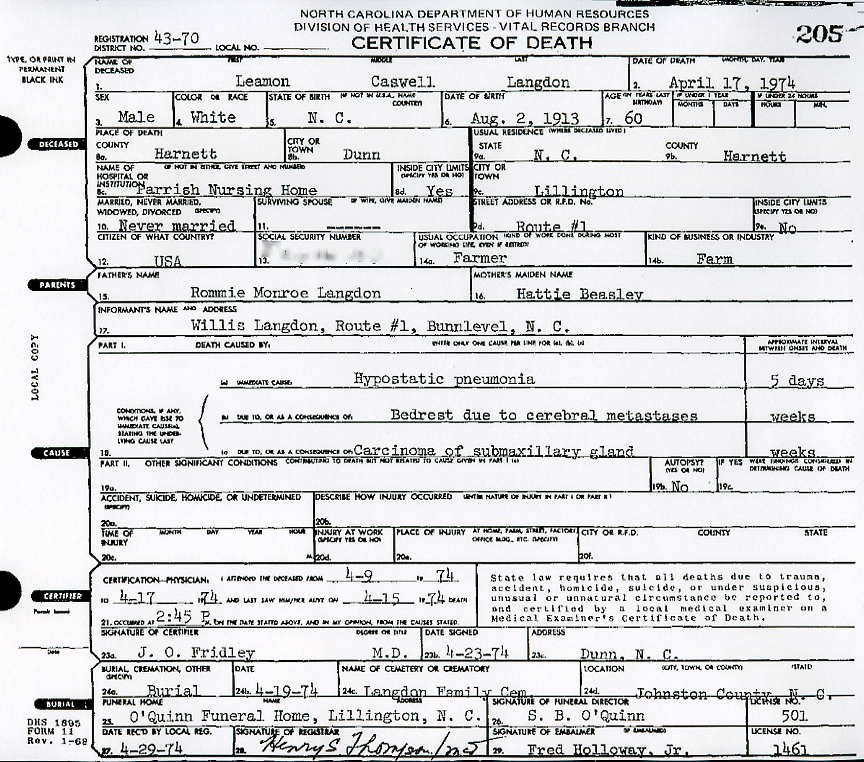 NORTH CAROLINA DEPARTMENT OF HUMAN RESOURCES
DIVISION OF HEALTH SERVICES - VITAL RECORDS BRANCH
CERTIFICATE OF DEATH
205
REGISTRATION DISTRICT NO. 43-70 LOCAL NO.
TYPE, OR PRINT IN PERMANENT BLACK INK
NAME OF DECEASED FIRST MIDDLE LAST DATE OF DEATH (MONTH, DAY, YEAR)
1. Leamon Caswell Langdon 2. April 17, 1974
SEX COLOR OR RACE STATE OF BIRTH (IF NOT IN U.S.A. NAME COUNTRY) DATE OF BIRTH AGE (IN YEARS LAST BIRTHDAY) IF UNDER 1 YEAR IF UNDER 24 HOURS
MONTHS DAYS HOURS MIN.
3. Male 4. White 5. N. C. 6. Aug. 2, 1913 7. 60
DECEASED
PLACE OF DEATH USUAL RESIDENCE (WHERE DECEASED LIVED)
COUNTY CITY OR TOWN STATE COUNTY
8a. Harnett 8b. Dunn 9a. N. C. 9b. Harnett
NAME OF HOSPITAL OR INSTITUTION (IF NOT IN EITHER, GIVE STREET AND NUMBER) INSIDE CITY LIMITS (SPECIFY YES OR NO) CITY OR TOWN
8c. Parrish Nursing Home 8d. Yes 9c. Lillington
MARRIED, NEVER MARRIED, WIDOWED, DIVORCED (SPECIFY) SURVIVING SPOUSE (IF WIFE, GIVE MAIDEN NAME) STREET ADDRESS OR R.F.D. No. INSIDE CITY LIMITS (SPECIFY YES OR NO)
10. Never married 11. 9d. Route #1 9e. No
CITIZEN OF WHAT COUNTRY? SOCIAL SECURITY NUMBER USUAL OCCUPATION (KIND OF WORK DONE DURING MOST OF WORKING LIFE, EVEN IF RETIRED) KIND OF BUSINESS OR INDUSTRY
12. USA 13. 14a. Farmer 14b. Farm
PARENTS
FATHER'S NAME MOTHER'S MAIDEN NAME
15. Rommie Monroe Langdon 16. Hattie Beasley
INFORMANT'S NAME AND ADDRESS
17. Willis Langdon, Route #1, Bunnlevel, N. C.
LOCAL COPY
PART I. DEATH CAUSED BY: ENTER ONLY ONE CAUSE PER LINE FOR (a), (b), (c) APPROXIMATE INTERVAL BETWEEN ONSET AND DEATH
(a) IMMEDIATE CAUSE: Hypostatic pneumonia 5 days
CONDITIONS, IF ANY, WHICH GAVE RISE TO IMMEDIATE CAUSE(A), STATING THE UNDERLYING CAUSE LAST
(b) DUE TO, OR AS A CONSEQUENCE OF: Bedrest due to cerebral metastases weeks
18. (c) DUE TO, OR AS A CONSEQUENCE OF: Carcinoma of submaxillary gland weeks
CAUSE
PART II. OTHER SIGNIFICANT CONDITIONS CONTRIBUTING TO DEATH BUT NOT RELATED TO CAUSE GIVEN IN PART I (a) AUTOPSY? (YES OR NO) IF YES WERE FINDINGS CONSIDERED IN DETERMINING CAUSE OF DEATH
19a. 19b. No 19c.
ACCIDENT, SUICIDE, HOMICIDE, OR UNDETERMINED (SPECIFY) DESCRIBE HOW INJURY OCCURRED (ENTER NATURE OF INJURY IN PART I OR PART II)
20a. 20b.
TIME OF INJURY MONTH DAY YEAR HOUR INJURY AT WORK (SPECIFY YES OR NO) PLACE OF INJURY AT HOME, FARM, STREET, FACTORY, OFFICE BLDG., ETC. (SPECIFY) CITY OR R.F.D. COUNTY STATE
20c. M. 20d. 20e. 20f.
CERTIFIER
CERTIFICATION-PHYSICIAN: I ATTENDED THE DECEASED FROM 4-9 19 74
TO 4-17 74 AND LAST SAW HIM/HER ALIVE ON 4-15 19 74 DEATH
21. OCCURRED AT 2:45 P M. ON THE DATE STATED ABOVE, AND IN MY OPINION, FROM THE CAUSES STATED.
State law requires that all deaths due to trauma,
accident, homicide, suicide, or under suspicious,
unusual or unnatural circumstance be reported to,
and certified by a local medical examiner on a
Medical Examiner's Certificate of Death.
Permit Issued
Date
SIGNATURE OF CERTIFIER DEGREE OR TITLE DATE SIGNED ADDRESS
23a. J. O. Fridley M.D. 23b. 4-23-74 23c. Dunn, N. C.
BURIAL
BURIAL, CREMATION, OTHER (SPECIFY) DATE NAME OF CEMETERY OR CREMATORY LOCATION (CITY, TOWN, OR COUNTY) (STATE)
24a. Burial 24b. 4-19-74 24c. Langdon Family Cem. 24d. Johnston County, N. C.
FUNERAL HOME NAME ADDRESS SIGNATURE OF FUNERAL DIRECTOR LICENSE NO.
25. O'Quinn Funeral Home, Lillington, N. C. 26. S. B. O'Quinn 501
DATE REC'D BY LOCAL REG. SIGNATURE OF REGISTRAR SIGNATURE OF EMBALMER (IF EMBALMED) LICENSE NO.
27. 4-29-74 28. Henry S Thompson/ 29. Fred Holloway, Jr. 1461
DHS 1895
FORM 11
Rev. 1-68